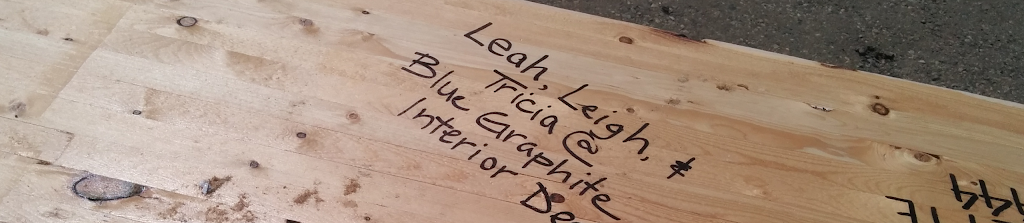 Leah, Leigh, &
Tricia @
Blue Graphite
Interior De